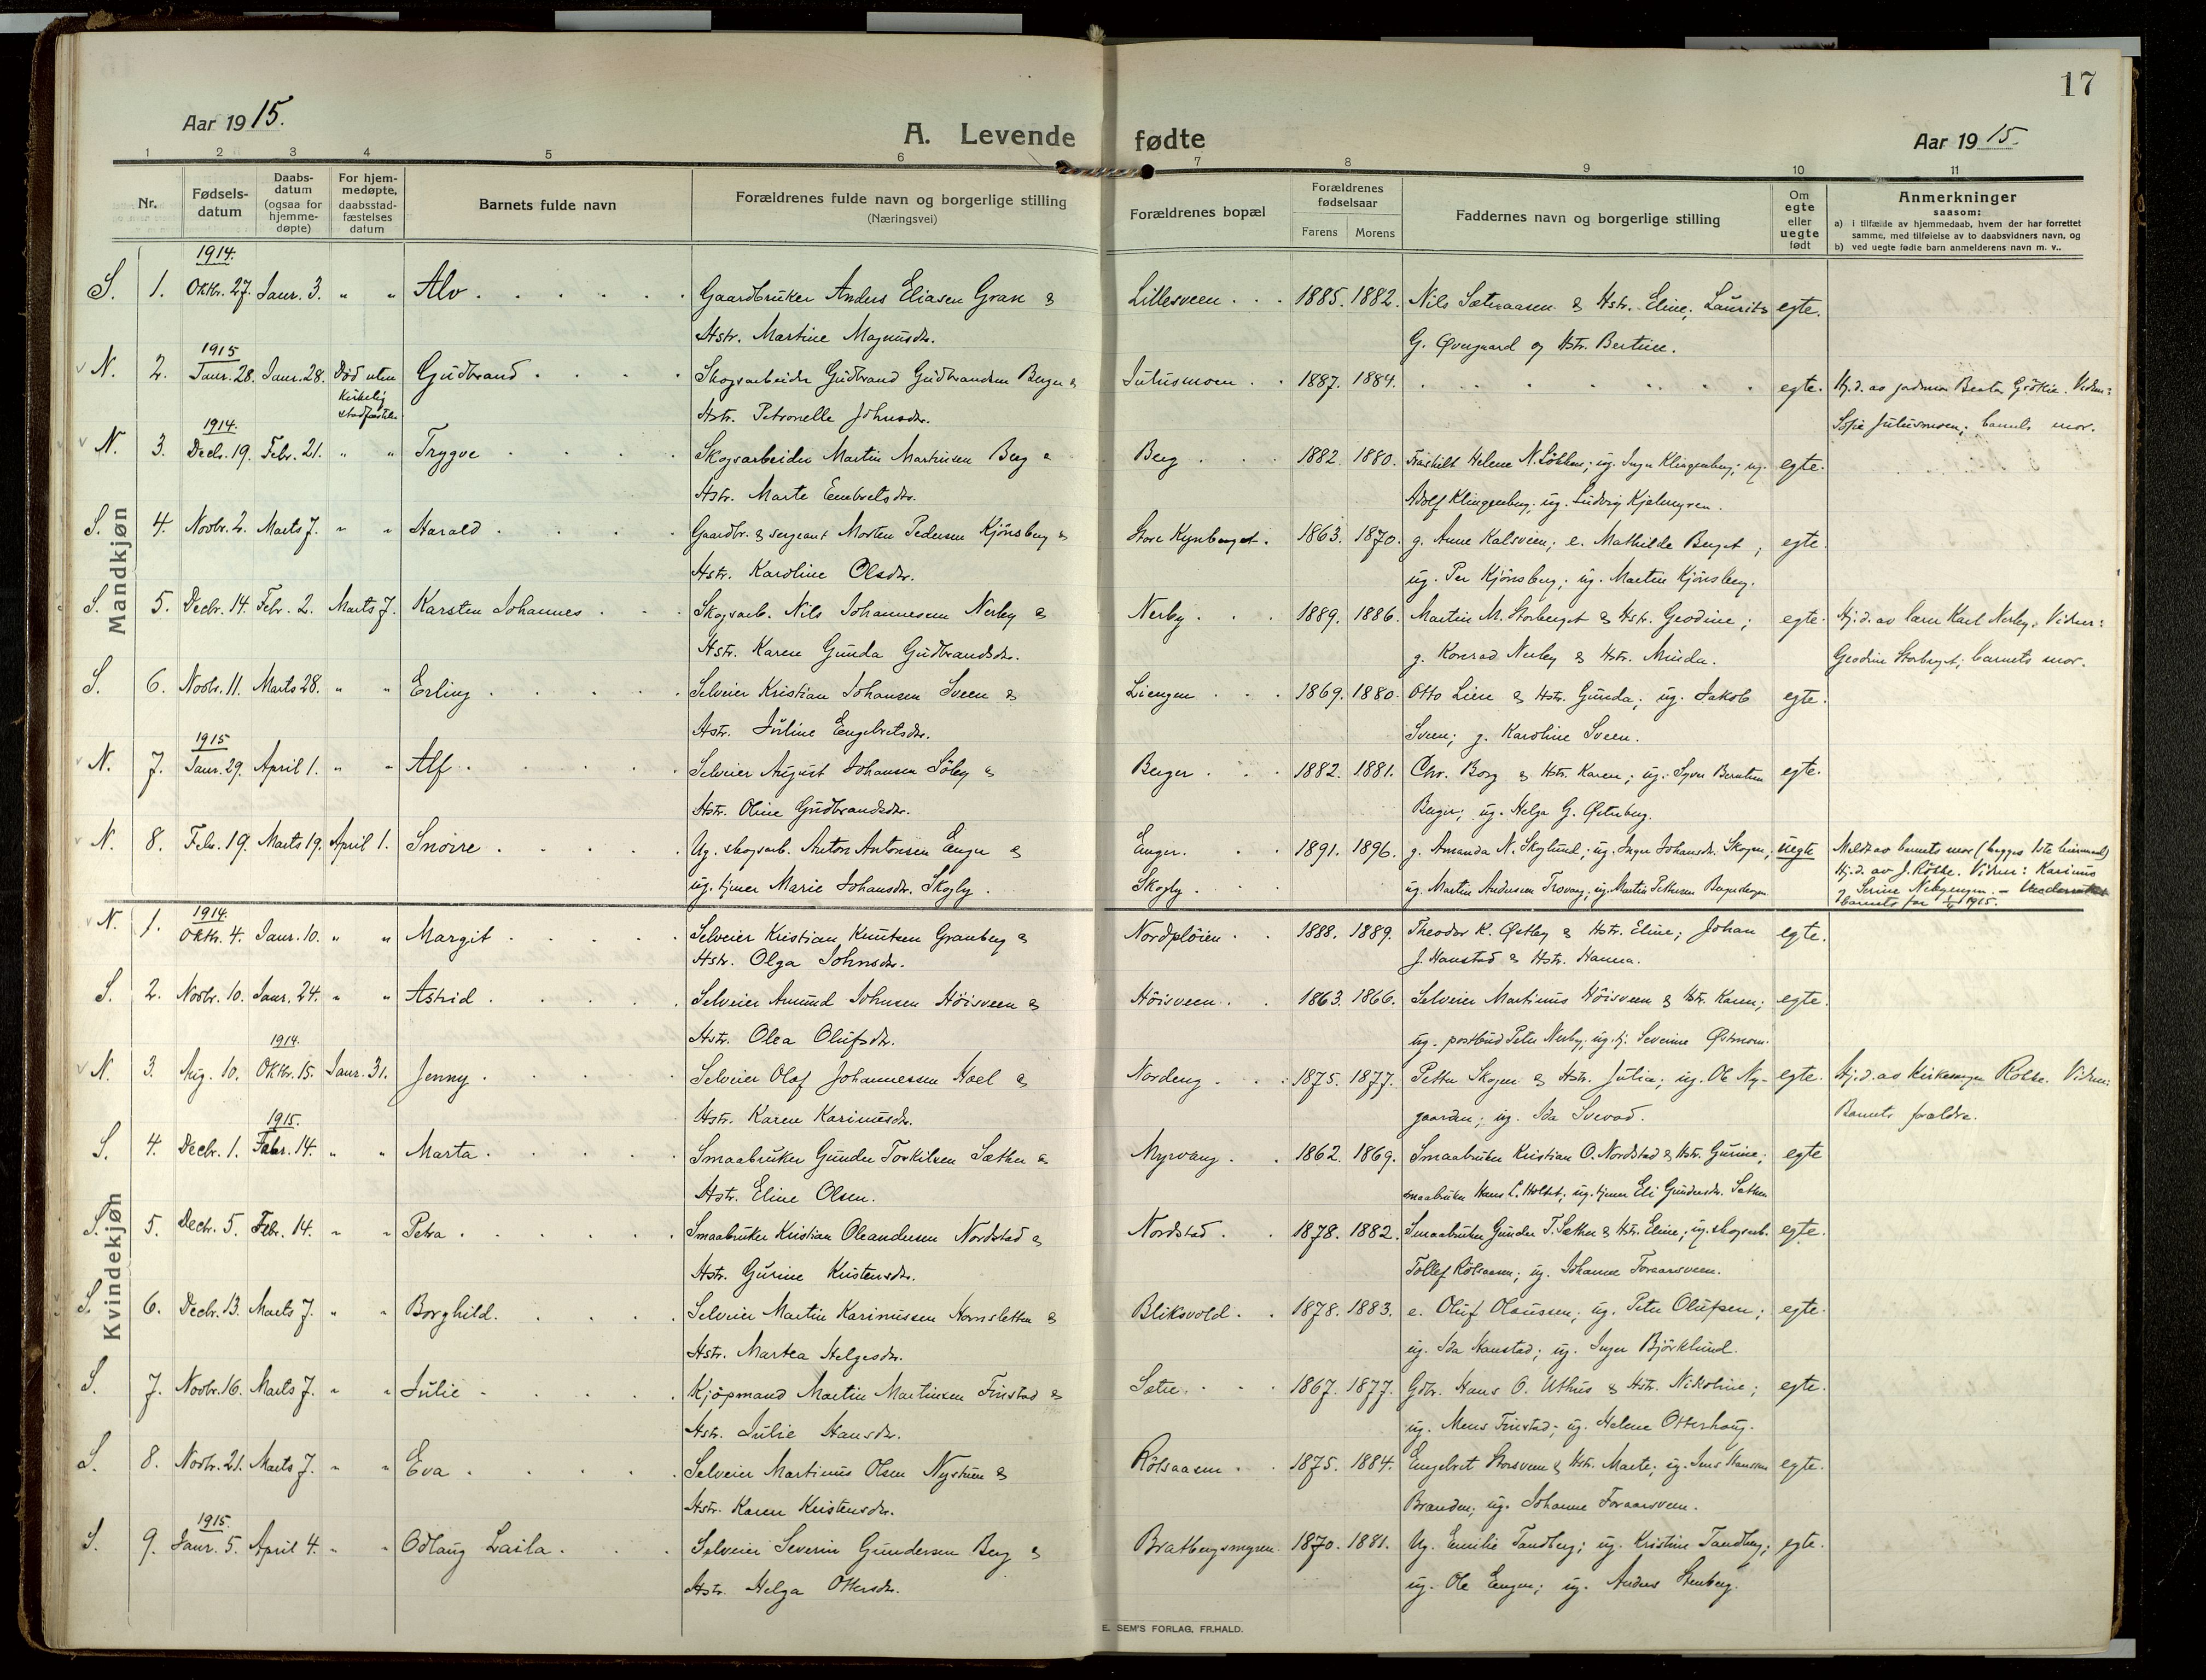 17
Aar 1915.
A. Levende fødte
Aar 1915.
1 2 3 4 5 6 7 8 9 10 11
Nr.
Fødsels-
datum
Daabs-
datum
(ogsaa for
hjemme-
døpte)
For hjem-
medøpte,
daabsstad-
fæstelses
datum
Barnets fulde navn
Forældrenes fulde navn og borgerlige stilling
(Næringsvei)
Forældrenes bopæl
Forældrenes
fødselsaar
Farens Morens
Faddernes navn og borgerlige stilling
Om
egte
eller
uegte
født
Anmerkninger
saasom:
a) i tilfælde av hjemmedaab, hvem der har forrettet
samme, med tilføielse av to daabsvidners navn, og
b) ved uegte fødte barn anmelderens navn m. v..
Mandkjøn
1914.
S. 1. Oktbr. 27. Janr. 3. " " Alv. Gaardbruker Anders Eliasen Gran & Lillesveen. 1885. 1882. Nils Sætraasen & Hstr. Eline; Laurits egte.
Hstr. Martine Magnusdr. G. Øvergaard og Hstr. Bertine.
1915
N. 2. Janr. 28. Janr. 28. Død uten Gudbrand. Skogsarbeider Gudbrand Gudbrandsen Berger & Julusmoen. 1887. 1884. egte. Hj.d. av jordmor Beate Vidner:
kirkelig
stadfæstelse Hstr. Petronelle Johnsdr. Sofie Julusmoen; barnets mor.
1914.
N. 3. Decbr. 19. Febr. 21. " " Trygve Skogsarbeider Martin Martinsen Berg & Berg 1882. 1880. Fraskilt Helene N. Løkken; ug. Inga Klingenberg; ug. egte.
Hstr. Marte Eenbretsdr. Adolf Klingenberg; ug. Ludvig Kjelmyren.
S. 4. Novbr. 2. Marts 7. " " Harald Gaardbr. & sergeant Morten Pedersen Kjønsberg & Store Kynberget. 1863. 1870. g. Anne Kalsveen; e. Mathilde Berget; egte.
Hstr. Karoline Olsdr. ug. Per Kjønsberg; ug. Martin Kjønsberg.
S. 5. Decbr. 14. Febr. 2. Marts 7. Karsten Johannes Skogsarb. Nils Johannesen Nerby & Nerby. 1889. 1886. Martin M. Storberget & Hstr. Geodine; egte. Hj.d. av lærer Karl Nerby. Vidner:
Hstr. Karen Gunda Gudbrandsdr. g. Konrad Nerby & Hstr. Minda. Geodine Storberget; barnets mor.
S. 6. Novbr. 11. Marts 28. " " Erling Selveier Kristian Johansen Sveen & Liengen 1869. 1880. Otto Lien & Hstr. Gunda; ug. Jakob egte.
Hstr. Juline Engebretsdr. Sveen; g. Karoline Sveen.
1915
N. 7. Janr. 29. April 1. " " Alf. Selveier August Johansen Søby & Berger 1882. 1881. Chr. Borg & Hstr. Karen; ug. Syver Berntsen egte.
Hstr. Oline Gudbrandsdr. Berger; ug. Helga G. Østerberg.
N. 8. Febr. 19. Marts 19. April 1. Snorre Ug. skogsarb. Anton Antonsen Enger & Enger. 1891. 1896. g. Amanda N. Skoglund; ug. Inger Johansdr. Skogen; uegte Meldt av barnets mor (begges 1ste leiermaal)
ug. tjener Marie Johansdr. Skogly. Skogly. ug. Martin Andersen ug. Martin Pettersen Hj.d. av J. Kolbe. Vidner: Karinus
og Serine
barnets far 1915.
Kvindekjøn
1914.
N. 1. Oktbr. 4. Janr. 10. " " Margit Selveier Kristian Knutsen Granberg & Nordpløien. 1888. 1889. Theodor K. Østby & Hstr. Eline; Johan egte.
Hstr. Olga Johnsdr. J. Hanstad & Hstr. Hanna.
S. 2. Novbr. 10. Janr. 24. " " Astrid Selveier Amund Johnsen Høisveen & Høisveen. 1863. 1866. Selveier Martinus Høisveen & Hstr. Karen; egte.
Hstr. Olea Olufsdr. ug. postbud Peter Nerby; ug. tj. Severine Østmoen.
1914.
N. 3. Aug. 10. Oktbr. 15. Janr. 31. Jenny Selveier Olaf Johannessen Hoel & Nordeng 1875. 1877. Petter Skogen & Hstr. Julia; ug. Ole Ny- egte. Hj.d. av kirkesanger Kolbe. Vidner:
Hstr. Karen Karinusdr. gaarden; ug. Ida Svevad. Barnets forældre.
1915.
S. 4. Decbr. 1. Febr. 14. " " Marta Smaabruker Gunder Torkilsen Sæther & Myrvang. 1862. 1869. Smaabruker Kristian O. Nordstad & Hstr. Gurine; egte
Hstr. Eline Olsen. smaabruker Hans L. Holtet; ug. tjener Eli Gundersdr. Sæther
S. 5. Decbr. 5. Febr. 14. " " Petra Smaabruker Kristian Oleandersen Nordstad & Nordstad. 1878. 1882. Smaabruker Gunder T. Sæther & Hstr. Eline; ug. skogsarb. egte.
Hstr. Gurine Kristensdr. Tollef Kølsaasen; ug. Johanne Foraarsveen.
S. 6. Decbr. 13. Marts 7. " " Borghild. Selveier Martin Karinussen Hornsletten & Bliksvold. 1878. 1883. e. Oluf Olaussen; ug. Peter Olufsen; egte.
Hstr. Martea Helgesdr. ug. Ida Hanstad; ug. Inger Bjørklund.
S. 7. Novbr. 16. Marts 7. " " Julie Kjøpmand Martin Martinsen Finstad & Sætre. 1867. 1877. Gdbr. Hans O. Uthus & Hstr. Nikoline; egte.
Hstr. Julie Hansdr. ug. Mens Finstad; ug. Helene Otterhaug.
S. 8. Novbr. 21. Marts 7. " " Eva Selveier Martinus Olsen Nystuen & Kølsaasen. 1875. 1884. Engebret Storsveen & Hstr. Marte; ug. Jens Hansen egte.
Hstr. Karen Kristensdr. Branden; ug. Johanne Foraarsveen.
1915.
S. 9. Janr. 5. April 4. " " Odlaug Laila. Selveier Severin Gundersen Berg & Bratbergsmyren. 1870. 1881. Ug. Emilie Tandberg; ug. Kristine Tandberg; egte.
Hstr. Helga Ottersdr. ug. Ole Engen; ug. Anders Stenberg.
E. SEM'S FORLAG, FR.HALD.